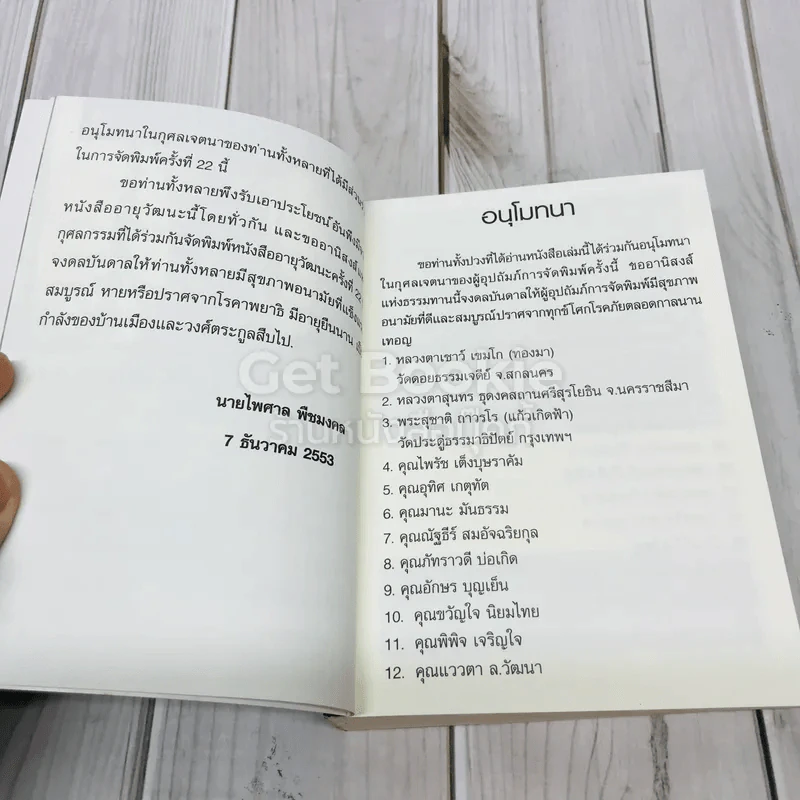 อนุโมทนาในกุศลเจตนาของท่านทั้งหลายที่ได้มีส่วน
ในการจัดพิมพ์ครั้งที่ 22 นี้
ขอท่านทั้งหลายพึงรับเอาประโยชน์อันพึงมี
หนังสืออายุวัฒนะนี้โดยทั่วกัน และขออานิสงส์
กุศลกรรมที่ได้ร่วมกันจัดพิมพ์หนังสืออายุวัฒนะครั้งที่ 22
จงดลบันดาลให้ท่านทั้งหลายมีสุขภาพอนามัยที่แข็งแรง
สมบูรณ์ หายหรือปราศจากโรคาพยาธิ มีอายุยืนนาน
กำลังของบ้านเมืองและวงศ์ตระกูลสืบไป.
นายไพศาล พืชมงคล
7 ธันวาคม 2553
อนุโมทนา
ขอท่านทั้งปวงที่ได้อ่านหนังสือเล่มนี้ได้ร่วมกันอนุโมทนา
ในกุศลเจตนาของผู้อุปถัมภ์การจัดพิมพ์ครั้งนี้ ขออานิสงส์
แห่งธรรมทานนี้จงดลบันดาลให้ผู้อุปถัมภ์การจัดพิมพ์มีสุขภาพ
อนามัยที่ดีและสมบูรณ์ปราศจากทุกข์โศกโรคภัยตลอดกาลนาน
เทอญ
1. หลวงตาเชาว์ เขมโก (ทองมา)
วัดดอยธรรมเจดีย์ จ.สกลนคร
2. หลวงตาสุนทร ธุดงคสถานศรีสุรโยธิน จ.นครราชสีมา
3. พระสุชาติ ถาวรโร (แก้วเกิดฟ้า)
วัดประตู่ธรรมาธิปัตย์ กรุงเทพฯ
4. คุณไพรัช เต็งบุษราคัม
5. คุณอุทิศ เกตุทัต
6. คุณมานะ มันธรรม
7. คุณณัฐธีร์ สมอัจฉริยกุล
8. คุณภัทราวดี บ่อเกิด
9. คุณอักษร บุญเย็น
10. คุณขวัญใจ นิยมไทย
11. คุณพิพิจ เจริญใจ
12. คุณแววตา ล.วัฒนา
Get Bookie
ร้านหนังสือเก็ทบุ๊คกี้